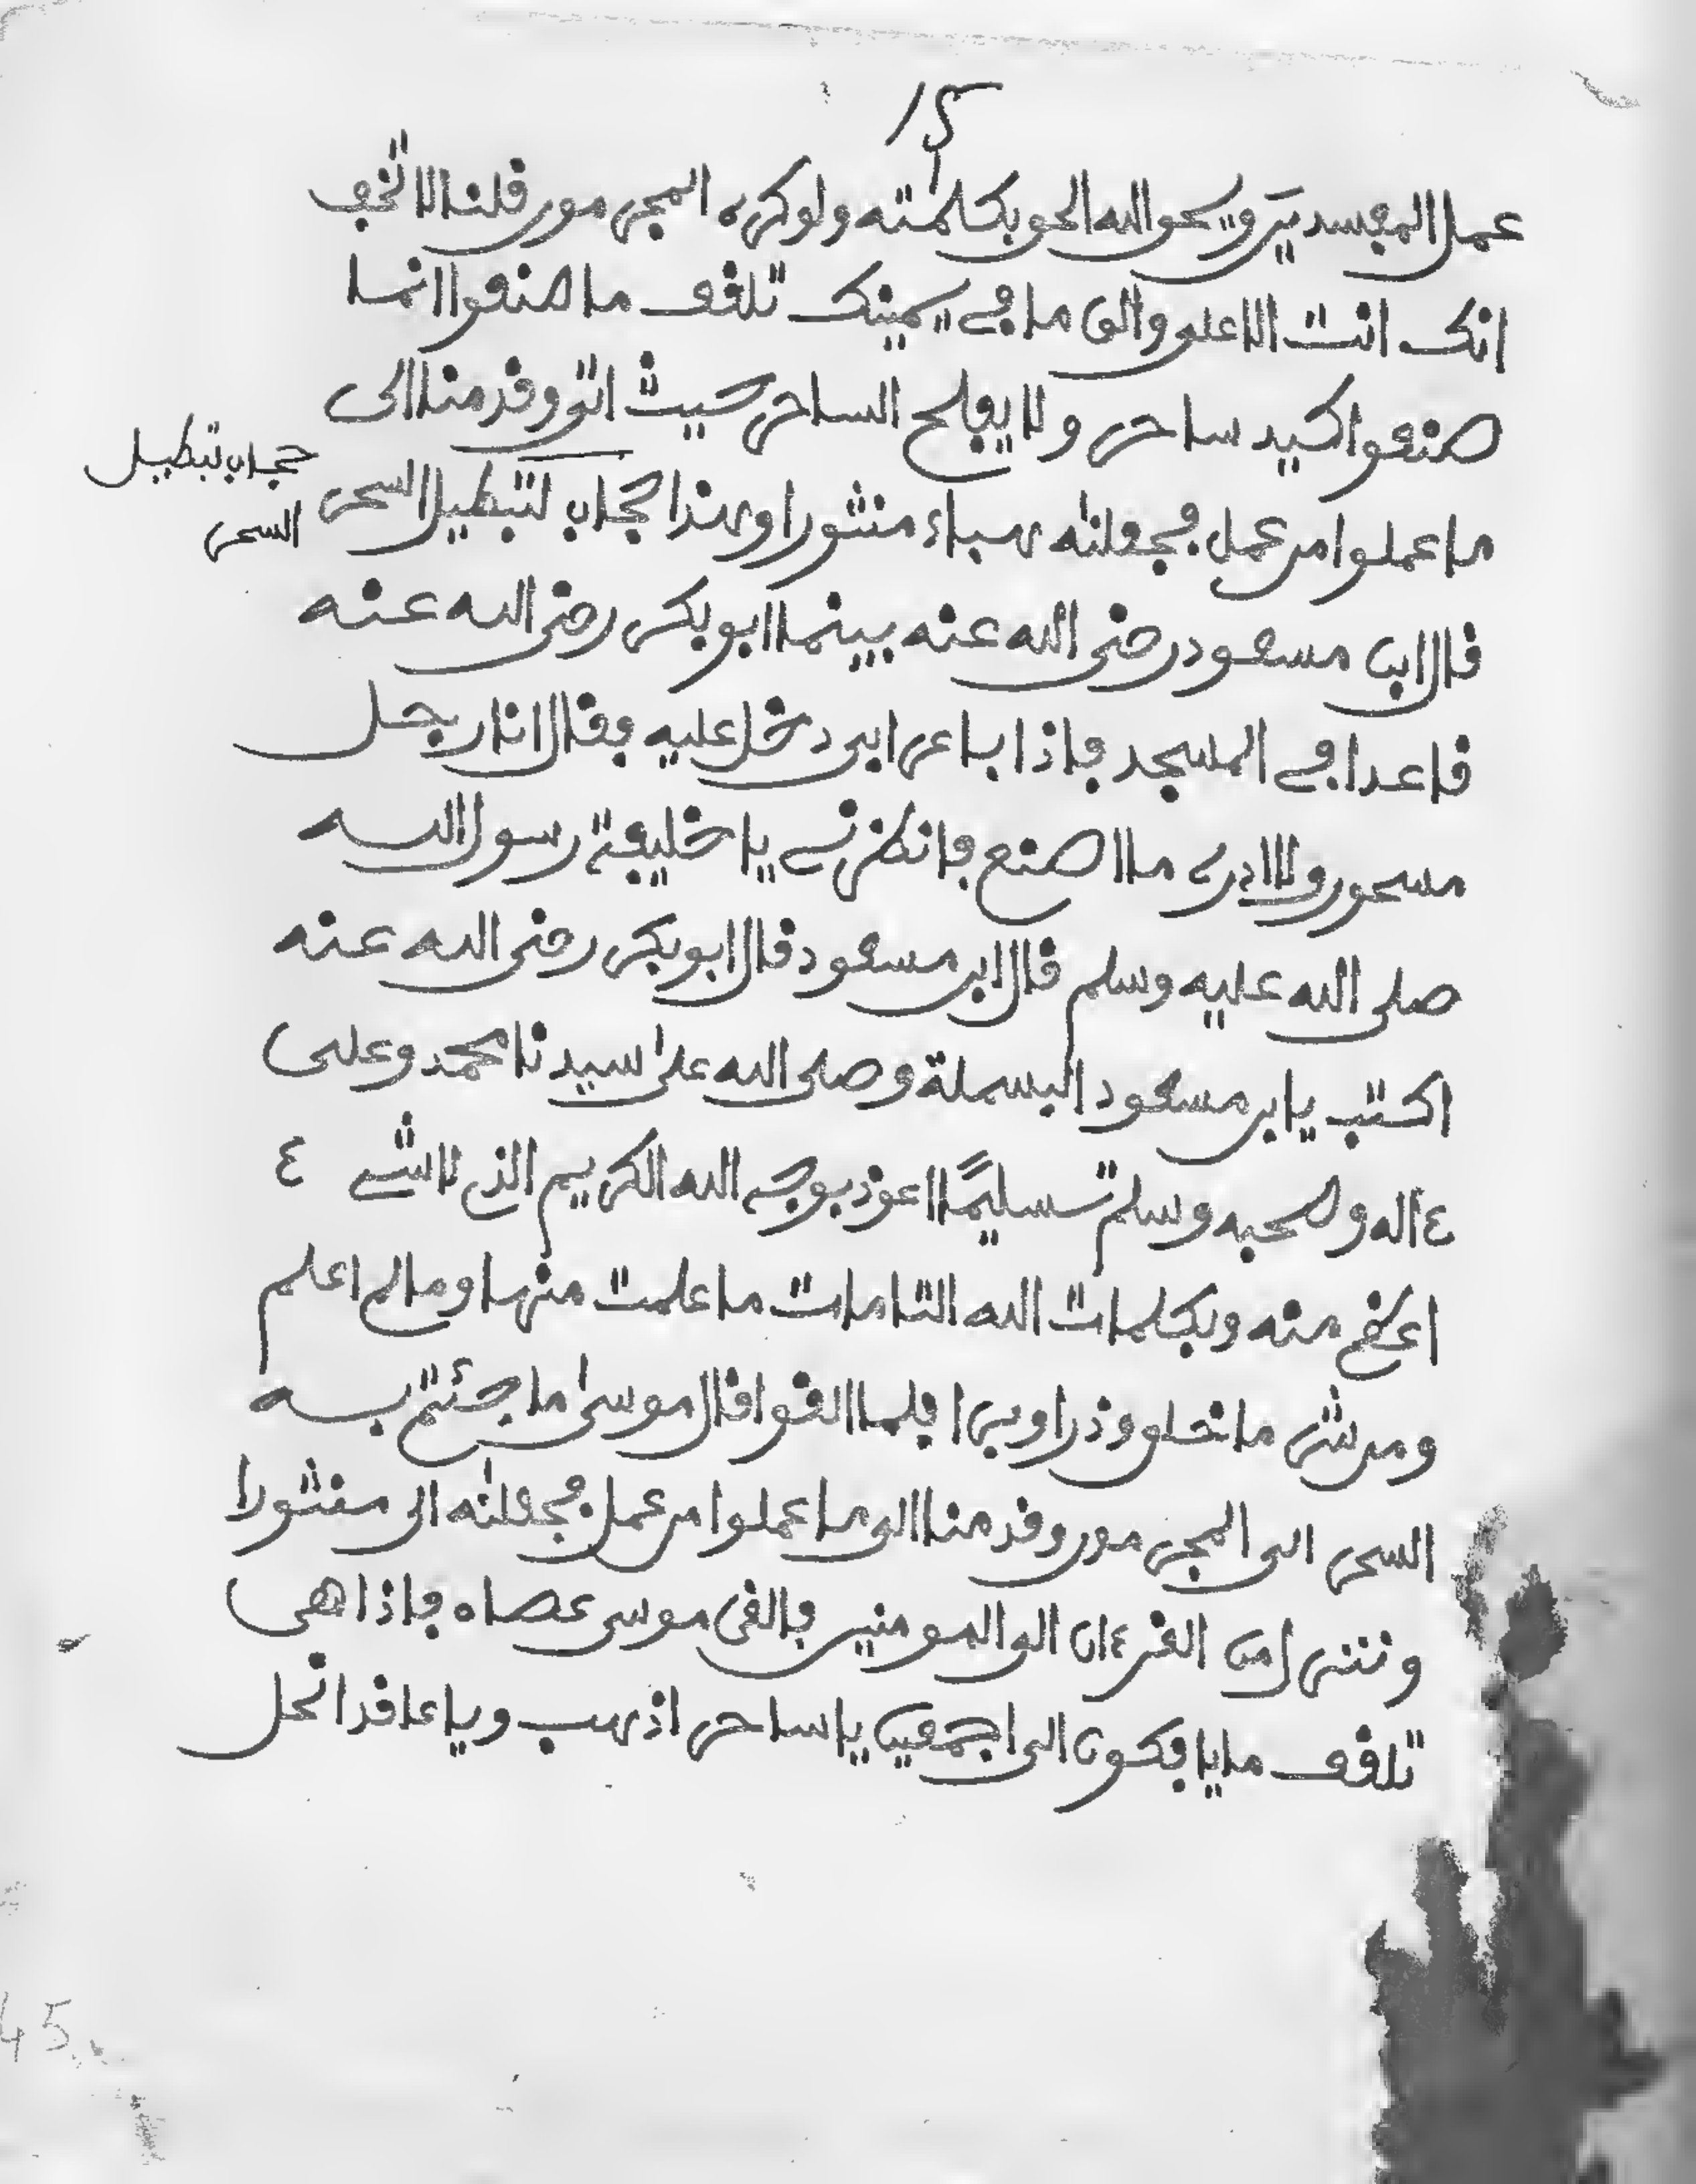 15
عمل المفسدين ويحق الله الحق بكلمته ولو كره المجرمون قلنا لا تخف
انك انت الاعلى والق ما في يمينك تلقف ما صنعوا انما
صنعوا كيد ساحر ولا يفلح الساحر حيث اتى وقدمنا الى
ما عملوا من عمل فجعلنه هباء منثورا وهذا حجاب لتبطيل السحر
حجاب تبطيل
السحر
قال ابن مسعود رضي الله عنه بينما ابو بكر رضي الله عنه
قاعدا في المسجد فاذا باعرابي دخل عليه فقال انا رجل
مسحور ولا ادري ما اصنع فانظرني يا خليفة رسول الله
صلى الله عليه وسلم قال ابن مسعود قال ابو بكر رضي الله عنه
اكتب يا ابن مسعود البسملة وصلى الله على سيدنا محمد وعلى
ءاله وصحبه وسلم تسليمًا اعوذ بوجه الله الكريم الذي لا شيء
اعظم منه وبكلمات الله التامات ما علمت منها وما لم اعلم
ومن شر ما خلق وذرا وبرا فلما القوا قال موسى ما جئتم به
السحر الى المجرمون وقدمنا الى ما عملوا من عمل فجعلنه الى منثورا
وننزل من القرءان الى المومنين فالقى موسى عصاه فاذا هي
تلقف ما يافكون الى اجمعين يا ساحر اذهب ويا عاقد انحل
45